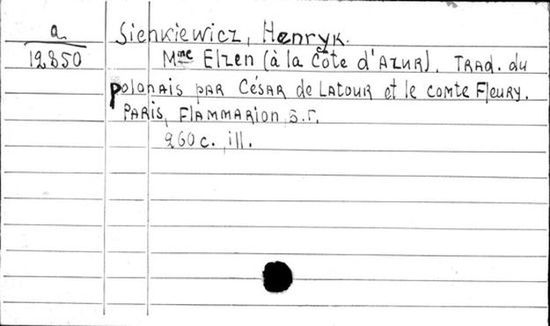 a
12850
Sienkiewicz, Henryk.
Mme Elzen (à la Côte d'Azur). Trad. du
polonais par César de Latour et le comte Fleury.
Paris, Flammarion, s.г.
260 c., ill.